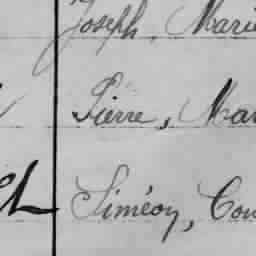 Joseph, Marie
Pierre, Mar
Siméon, Con